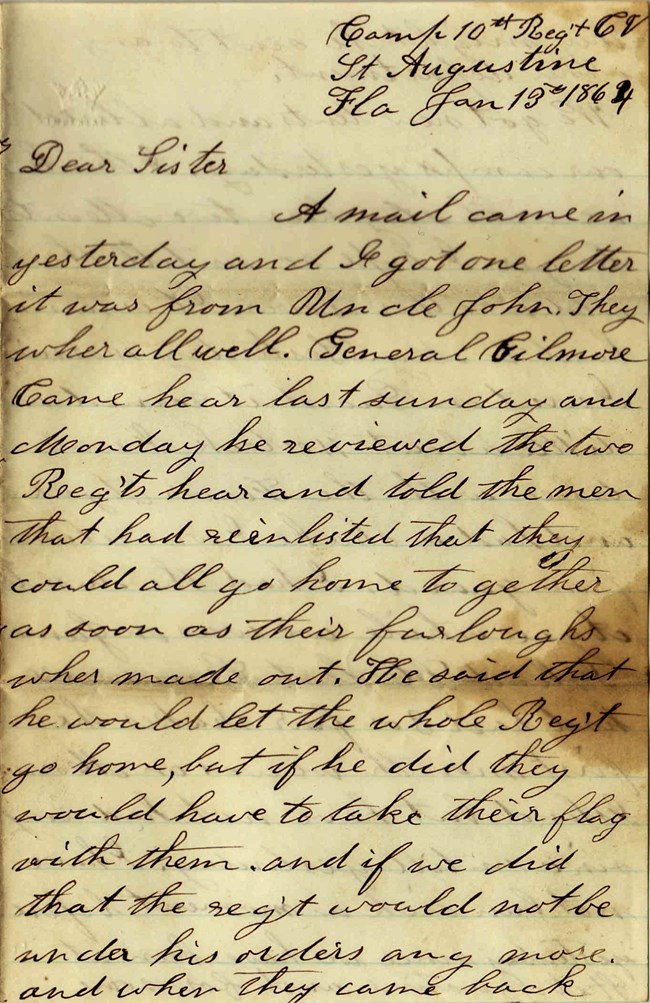 Camp 10th Reg't CV
St Augustine
Fla Jan 13th 1864
Dear Sister
A mail came in
yesterday and I got one letter
it was from Uncle John. They
wher all well. General Gilmore
Came hear last sunday and
Monday he reviewed the two
Reg'ts hear and told the men
that had reinlisted that they
could all go home to gether
as soon as their furloughs
wher made out. He said that
he would let the whole Reg't
go home, but if he did they
would have to take their flag
with them. and if we did
that the reg't would not be
under his orders any more.
and when they came back